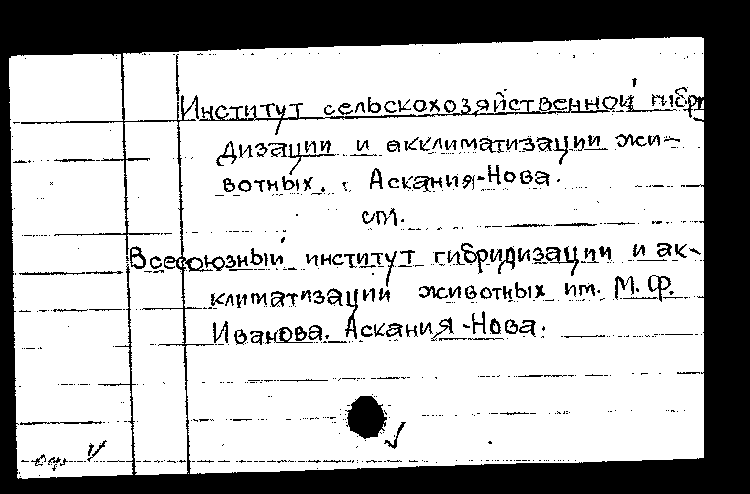 Институт сельскохозяйственной гибри
дизации и акклиматизации жи-
вотных. Аскания-Нова.
см.
Всесоюзный институт гибридизации и ак-
климатизации животных им. М.Ф.
Иванова. Аскания-Нова.